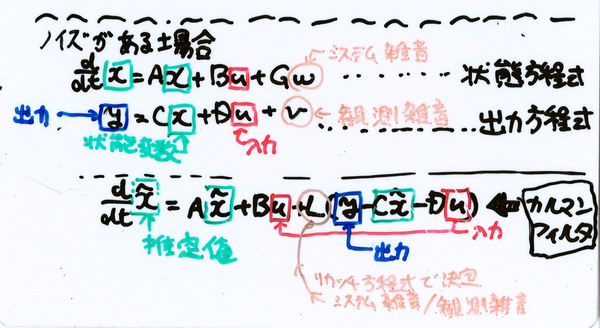 ノイズがある場合
d/dt x = Ax + Bu + Gw ……… 状態方程式
システム雑音
y = Cx + Du + v ……… 出力方程式
出力
観測雑音
状態変数
入力
d/dt x̂ = Ax̂ + Bu + L(y - Cx̂ - Du)
カルマン
フィルタ
推定値
入力
出力
リカッチ方程式で決定
システム雑音/観測雑音